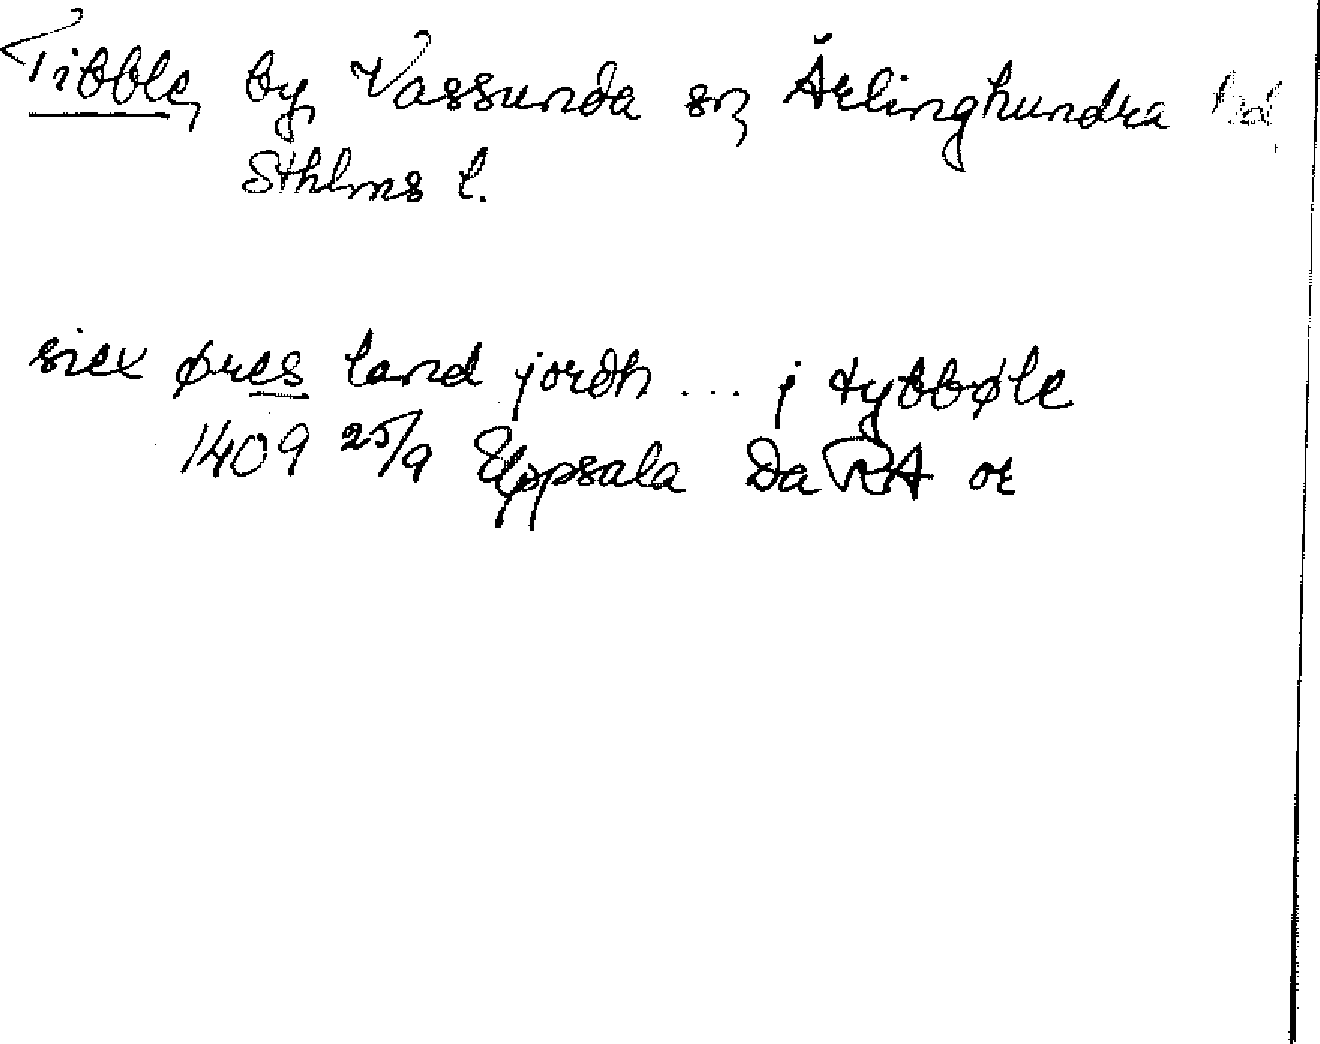 Tibble, by, Vassunda sn, Ärlinghundra hd,
Sthlms l.
siex øres land jordh ... j tybbøle
1409 25/9 Uppsala Da RA or